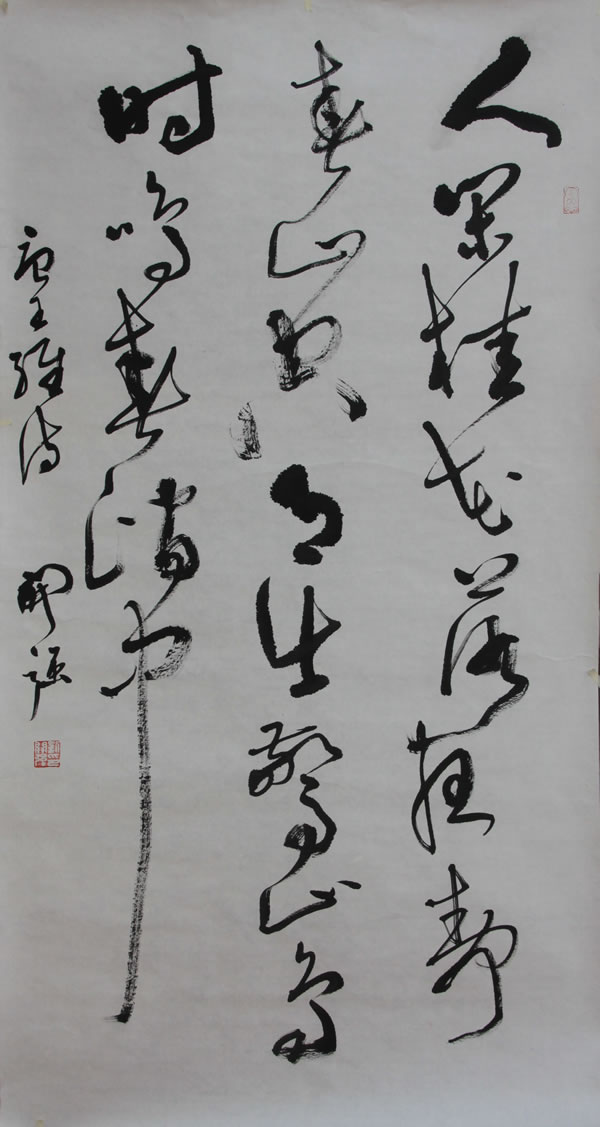 人闲桂花落夜静
春山空月出惊山鸟
时鸣春涧中
唐王维诗